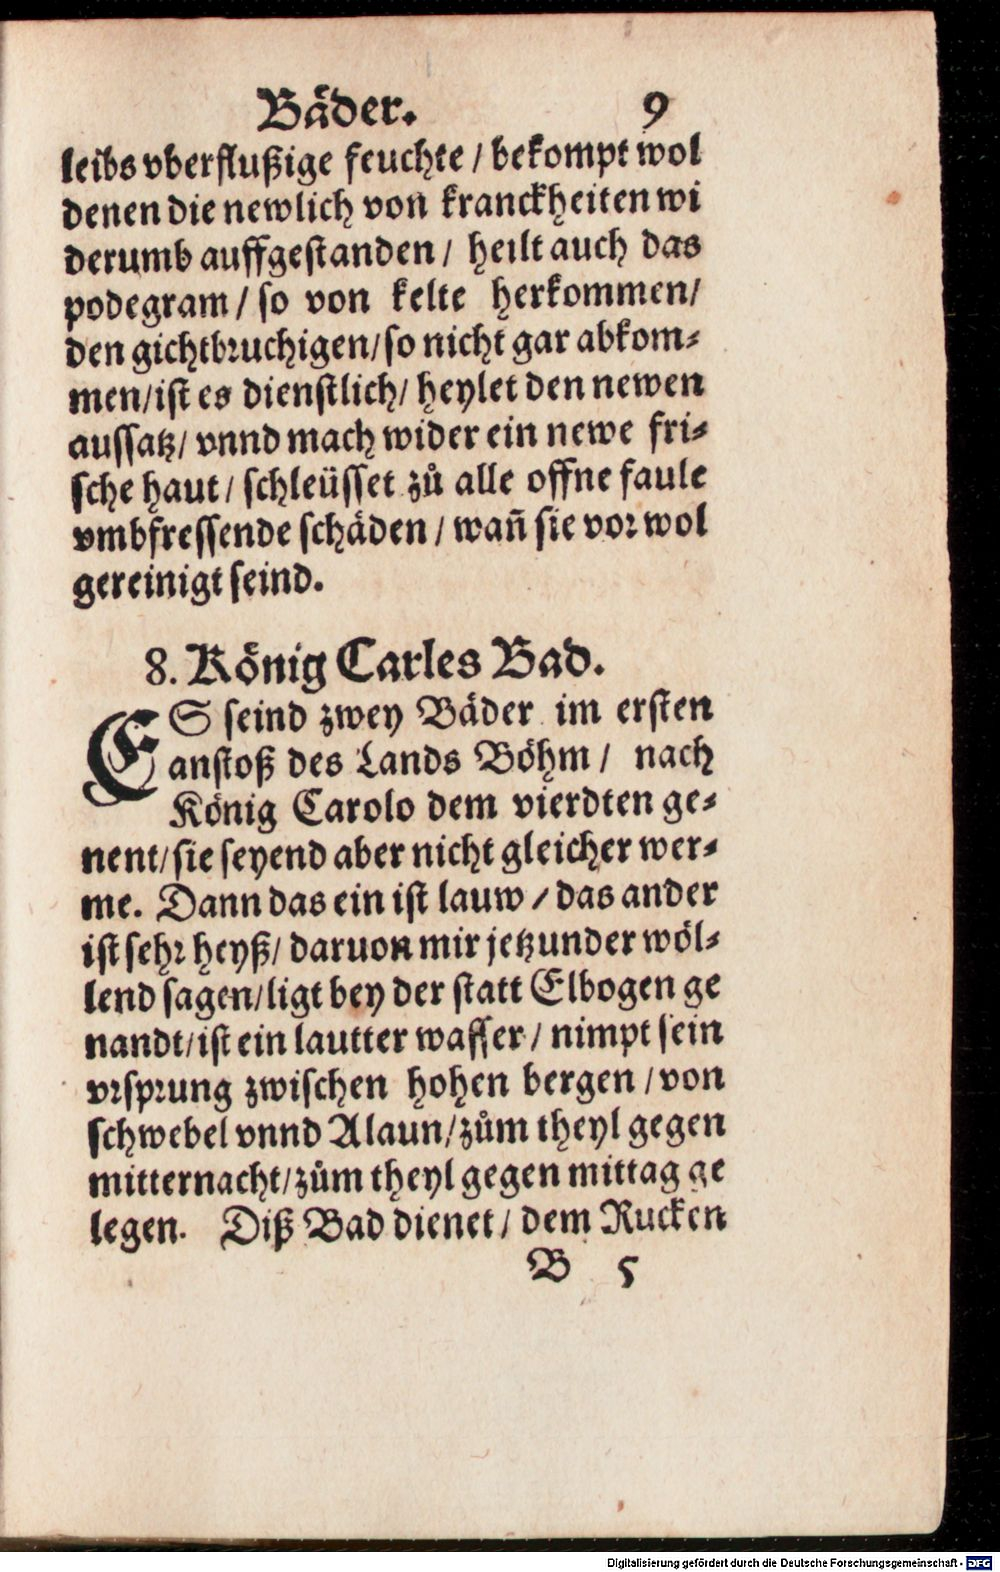 Bäder. 9
leibs vberflußige feuchte / bekompt wol
denen die newlich von kranckheiten wi
derumb auffgestanden / heilt auch das
podegram / so von kelte herkommen/
den gichtbruchigen/so nicht gar abkom⸗
men/ist es dienstlich/ heylet den newen
aussatz/ vnnd mach wider ein newe fri⸗
sche haut / schleüsset zů alle offne faule
vmbfressende schäden / wañ sie vor wol
gereinigt seind.
8. König Carles Bad.
ES seind zwey Bäder im ersten
anstoß des Lands Böhm / nach
König Carolo dem vierdten ge⸗
nent/sie seyend aber nicht gleicher wer⸗
me. Dann das ein ist lauw / das ander
ist sehr heyß/ daruon mir jetzunder wöl⸗
lend sagen/ligt bey der statt Elbogen ge
nandt/ist ein lautter wasser / nimpt sein
vrsprung zwischen hohen bergen / von
schwebel vnnd Alaun/zům theyl gegen
mitternacht/zům theyl gegen mittag ge
legen. Diß Bad dienet / dem Rucken
B 5
Digitalisierung gefördert durch die Deutsche Forschungsgemeinschaft - DFG